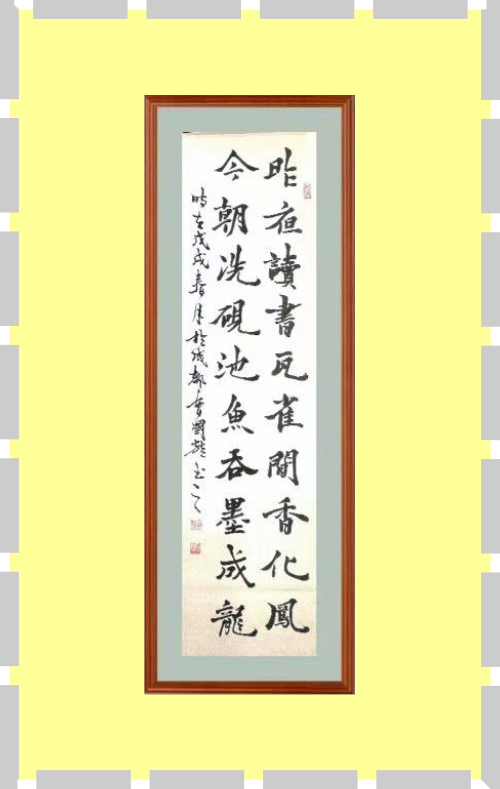 昨夜讀書瓦雀聞香化鳳
今朝洗硯池魚吞墨成龍
時在戊戌春月於成都